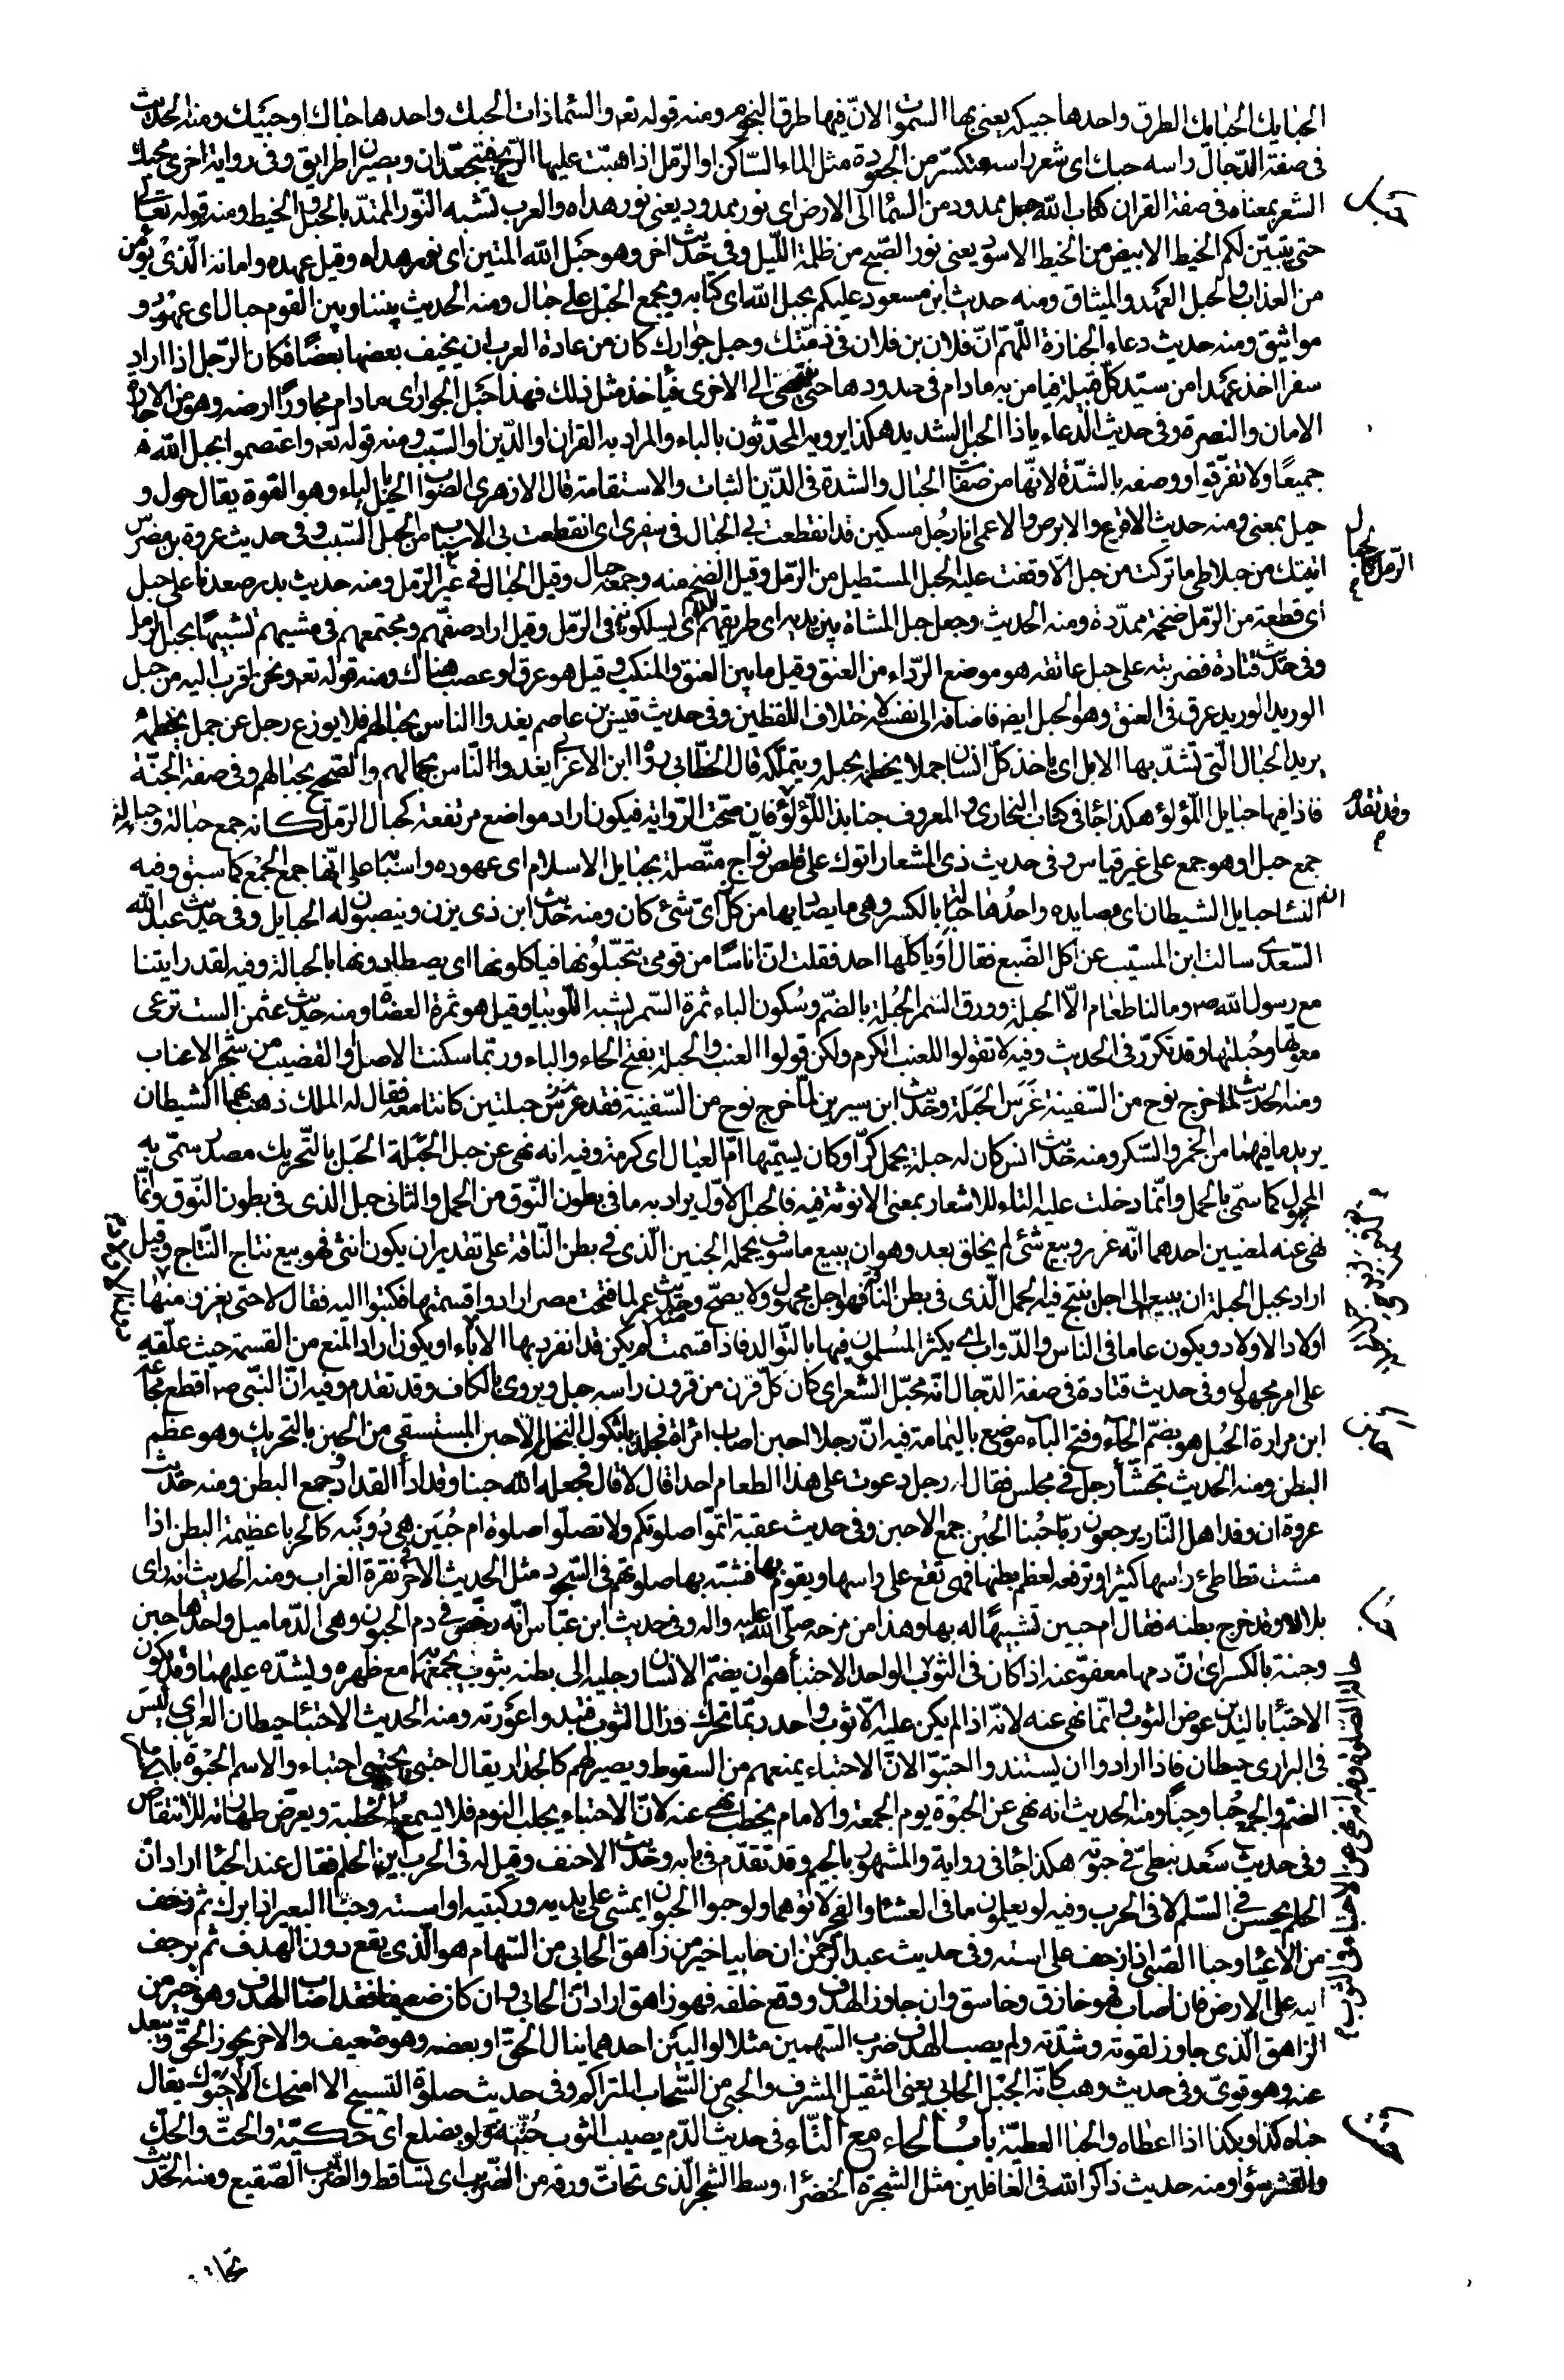 الحبايك الحبايك الطرق واحدها حبيكة يعني بها السموات لان فيها طرق النجوم ومنه قوله تعم والسماء ذات الحبك واحدها حباك او حبيك ومنه الحديث
في صفة الدجال راسه حبك اى شعر راسه متكسر من الجعودة مثل الماء الساكن او الرمل اذا هبت عليها الريح فيتجعدان ويصيران طرايق وفي رواية اخرى محبك
الشعر بمعناه في صفة القران كتاب الله حبل ممدود من السماء الى الارض اى نور ممدود يعني نور هداه والعرب تشبه النور الممتد بالحبل والخيط ومنه قوله تعالى
حتى يتبين لكم الخيط الابيض من الخيط الاسود يعني نور الصبح من ظلمة الليل وفي حديث اخر وهو حبل الله المتين اى نور هداه وقيل عهده وامانه الذى يؤمن
من العذاب والحبل العهد والميثاق ومنه حديث ابن مسعود عليكم بحبل الله اى كتابه ويجمع الحبل على حبال ومنه الحديث بيننا وبين القوم حبال اى عهود و
مواثيق ومنه حديث دعاء الجنازة اللهم ان فلان بن فلان في ذمتك وحبل جوارك كان من عادة العرب ان يخيف بعضها بعضا فكان الرجل اذا اراد
سفرا اخذ عهدا من سيد كل قبيلة فيامن به مادام في حدودها حتى ينتهى الى الاخرى فياخذ مثل ذلك فهذا حبل الجوار اى مادام مجاورا ارضه وهو من الاجارة
الامان والنصرة وفي حديث الدعاء ياذا الحبل الشديد هكذا يرويه المحدثون بالباء والمراد به القران او الدين او السبب ومنه قوله تعم واعتصموا بحبل الله
جميعا ولا تفرقوا ووصفه بالشدة لانها من صفات الحبال والشدة في الدين الثبات والاستقامة قال الازهرى الصواب الحيل بالياء وهو القوة يقال حول و
حيل بمعنى ومنه حديث الاقرع والابرص والاعمى انا رجل مسكين قد انقطعت بى الحبال في سفرى اى انقطعت بى الاسباب من الحبل السبب وفي حديث عروة بن مضرس
اتيتك من جبلى طى ما تركت من حبل الا وقفت عليه الحبل المستطيل من الرمل وقيل الضخم منه وجمعه حبال وقيل الحبال في الرمل كالجبال في غير الرمل ومنه حديث بدر صعدنا على حبل
اى قطعة من الرمل ضخمة ممدة ومنه الحديث وجعل حبل المشاة بين يديه اى طريقهم الذى يسلكونه في الرمل وقيل اراد صفهم ومجتمعهم في مشيهم تشبيها بحبل الرمل
وفي حديث قتادة فضربته على حبل عاتقه هو موضع الرداء من العنق وقيل ما بين العنق والمنكب وقيل هو عرق او عصب هناك ومنه قوله تعم ونحن اقرب اليه من حبل
الوريد الوريد عرق في العنق وهو الحبل ايضا فاضافه الى نفسه لاختلاف اللفظين وفي حديث قيس بن عاصم يغدوا الناس بحبالهم فلا يوزع رجل عن جمل يخطمه
يريد الحبال التى تشد بها الابل اى ياخذ كل انسان جملا يخطمه بحبله ويتملكه قال الخطابي رواه ابن الاعرابي يغدوا الناس بجمالهم والصحيح بحبالهم وفي صفة الجنة
فاذا فيها حبايل اللؤلؤ هكذا جاء في كتاب البخارى والمعروف جنابذ اللؤلؤ وقد تقدم فان صحت الرواية فيكون اراد مواضع مرتفعة كحبال الرمل كانه جمع حبالة وحبالة
جمع حبل او هو جمع على غير قياس وفي حديث ذى المشعار اتوك على قلص نواج متصلة بحبايل الاسلام اى عهوده واسبابه على انها جمع الجمع كما سبق وفيه
النساء حبايل الشيطان اى مصايده واحدها حبالة بالكسر وهى ما يصاد بها من كل اى شئ كان ومنه حديث ابن ذى يزن وينصبون له الحبايل وفي حديث عبد الله
السعدى سالت ابن المسيب عن اكل الضبع فقال او ياكلها احد فقلت ان اناسا من قومي يتحبلونها فياكلونها اى يصطادونها بالحبالة وفيه لقد رايتنا
مع رسول الله ص وما لنا طعام الا الحبلة وورق السمر الحبلة بالضم وسكون الباء ثمرة السمر يشبه اللوبيا وقيل هو ثمرة العضاه ومنه حديث عثمن الست ترعى
معوتها وحبلتها وقد تكرر في الحديث وفيه لا تقولوا للعنب الكرم ولكن قولوا العنب والحبلة بفتح الحاء والباء وربما سكنت الاصل او القضيب من شجر الاعناب
ومنه الحديث لما خرج نوح من السفينة غرس الحبلة وحديث ابن سيرين لما خرج نوح من السفينة فقد غرس حبلتين كانتا معه فقال له الملك ذهب بهما الشيطان
يريد ما فيهما من الخمر والسكر ومنه حديث انس كان له حبلة يحمل كرا وكان يسميها ام العيال اى كرمة وفيه انه نهى عن حبل الحبلة الحبل بالتحريك مصدر سمى به
المحمول كما سمى بالحمل وانما دخلت عليه التاء للاشعار بمعنى الانوثة فيه فالحبل الاول يراد به ما في بطون النوق من الحمل والثاني حبل الذى في بطون النوق وانما
نهى عنه لمعنيين احدهما انه غرر وبيع شئ لم يخلق بعد وهو ان يبيع ما سوف يحمله الجنين الذى في بطن الناقة على تقدير ان يكون انثى فهو بيع نتاج النتاج وقيل
اراد بحبل الحبلة ان يبيع الى اجل ينتج فيه الحمل الذى في بطن الناقة فهو اجل مجهول ولا يصح ومنه حديث عمر لما فتحت مصر ارادوا قسمتها فكتبوا اليه فقال لا حتى يغزو منها
اولاد الاولاد ويكون عاما في الناس والدواب اى يكثر المسلمون فيها بالتوالد فاذا قسمت لم يكن قد انفرد بها الاباء او يكون اراد المنع من القسمة حيث علقه
على امر مجهول وفي حديث قتادة في صفة الدجال انه محبل الشعر اى كان كل قرن من قرون راسه حبل ويروى بالكاف وقد تقدم وفيه ان النبي ص اقطع مجاعة
ابن مرارة الحبل هو بضم الحاء وفتح الباء موضع باليمامة فيه ان رجلا احبن اصاب امراة فجلد باثكول النخل الاحبن المستسقى من الحبن بالتحريك وهو عظم
البطن ومنه الحديث تجشا رجل في مجلس فقال له رجل دعوت على هذا الطعام احدا قال لا قال فجعله الله حبنا وقدادا القداد وجع البطن ومنه حديث
عروة ان وفد اهل النار يرجعون زبا حبنا الحبن جمع الاحبن وفي حديث عقبة اتموا صلوتكم ولا تصلوا صلوة ام حبين هى دويبة كالحرباء عظيمة البطن اذا
مشت تطاطئ راسها كثيرا وترفعه لعظم بطنها فهى تقع على راسها ويقوم بها فشبه بها صلوتهم في السجود مثل الحديث الاخر نقرة الغراب ومنه الحديث انه راى
بلالا وقد خرج بطنه فقال ام حبين تشبيها له بها وهذا من مزحه صلى الله عليه واله وفي حديث ابن عباس انه رخص في دم الحبون وهى الدماميل واحدها حبن
وحبنة بالكسر اى ان دمها معفو عنه اذا كان في الثوب الواحد الاحتباء هو ان يضم الانسان رجليه الى بطنه بثوب يجمعهما مع ظهره ويشده عليهما وقد يكون
الاحتباء باليدين عوض الثوب وانما نهى عنه لانه اذا لم يكن عليه الا ثوب واحد ربما تحرك وزال الثوب فتبدو اعورته ومنه الحديث الاحتباء حيطان العرب اى ليس
في البرارى حيطان فاذا ارادوا ان يستندوا احتبوا لان الاحتباء يمنعهم من السقوط ويصير لهم كالجدار يقال احتبى يحتبى احتباء والاسم الحبوة بالكسر
الضم والجمع حبا وحبا ومنه الحديث انه نهى عن الحبوة يوم الجمعة والامام يخطب نهى عنه لان الاحتباء يجلب النوم فلا يسمع الخطبة ويعرض طهارته للانتقاض
وفي حديث سعد نبطى في حبوته هكذا جاء في رواية والمشهور بالجيم وقد تقدم في بابه وحديث الاحنف وقيل له في الحرب اين الحلم فقال عند الحباء اراد ان
الحلم يحسن في السلم لا في الحرب وفيه لو يعلمون ما في العشاء والفجر لاتوهما ولو حبوا الحبو ان يمشى على يديه وركبتيه او استه وحبا البعير اذا برك ثم زحف
من الاعياء وحبا الصبي اذا زحف على استه وفي حديث عبد الرحمن ان حابيا خير من زاهق الحابي من السهام هو الذى يقع دون الهدف ثم يزحف
اليه على الارض فان اصاب فهو خازق وخاسق وان جاوز الهدف ووقع خلفه فهو زاهق اراد ان الحابي وان كان ضعيفا فقد اصاب الهدف وهو خير من
الزاهق الذى جاوز لقوته وشدته ولم يصب الهدف ضرب السهمين مثلا لواليين احدهما ينال الحق او بعضه وهو ضعيف والاخر يجوز الحق ويبعد
عنه وهو قوى وفي حديث وهب كانه الجبل الحابي يعنى الثقيل المشرف والحبي من السحاب المتراكم وفي حديث صلوة التسبيح الا امنحك الا احبوك يقال
حباه كذا وبكذا اذا اعطاه والحباء العطية باب الحاء مع التاء في حديث الدم يصيب الثوب حتيه ولو بضلع اى حكيه والحت والحك
والقشر سواء ومنه حديث ذاكر الله في الغافلين مثل الشجرة الخضراء وسط الشجر الذى تحات ورقه من الضريب اى تساقط والضريب الصقيع ومنه الحديث
تحاتت